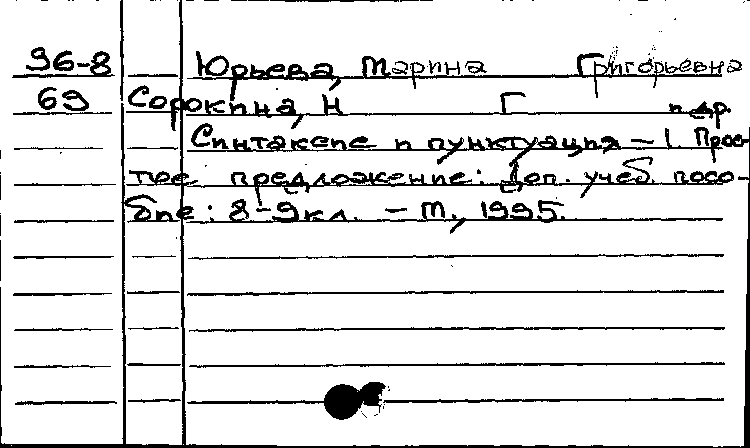 96-8 Юрьева, Марина Григорьевна
69 Сорокина, Н Г и др.
Синтаксис и пунктуация - 1. Прос-
тое предложение: Доп. учеб. посо-
бие: 8-9 кл. - М., 1995.